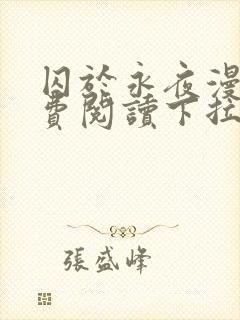 囚於永夜漫
費閱讀下拉
張盛峰